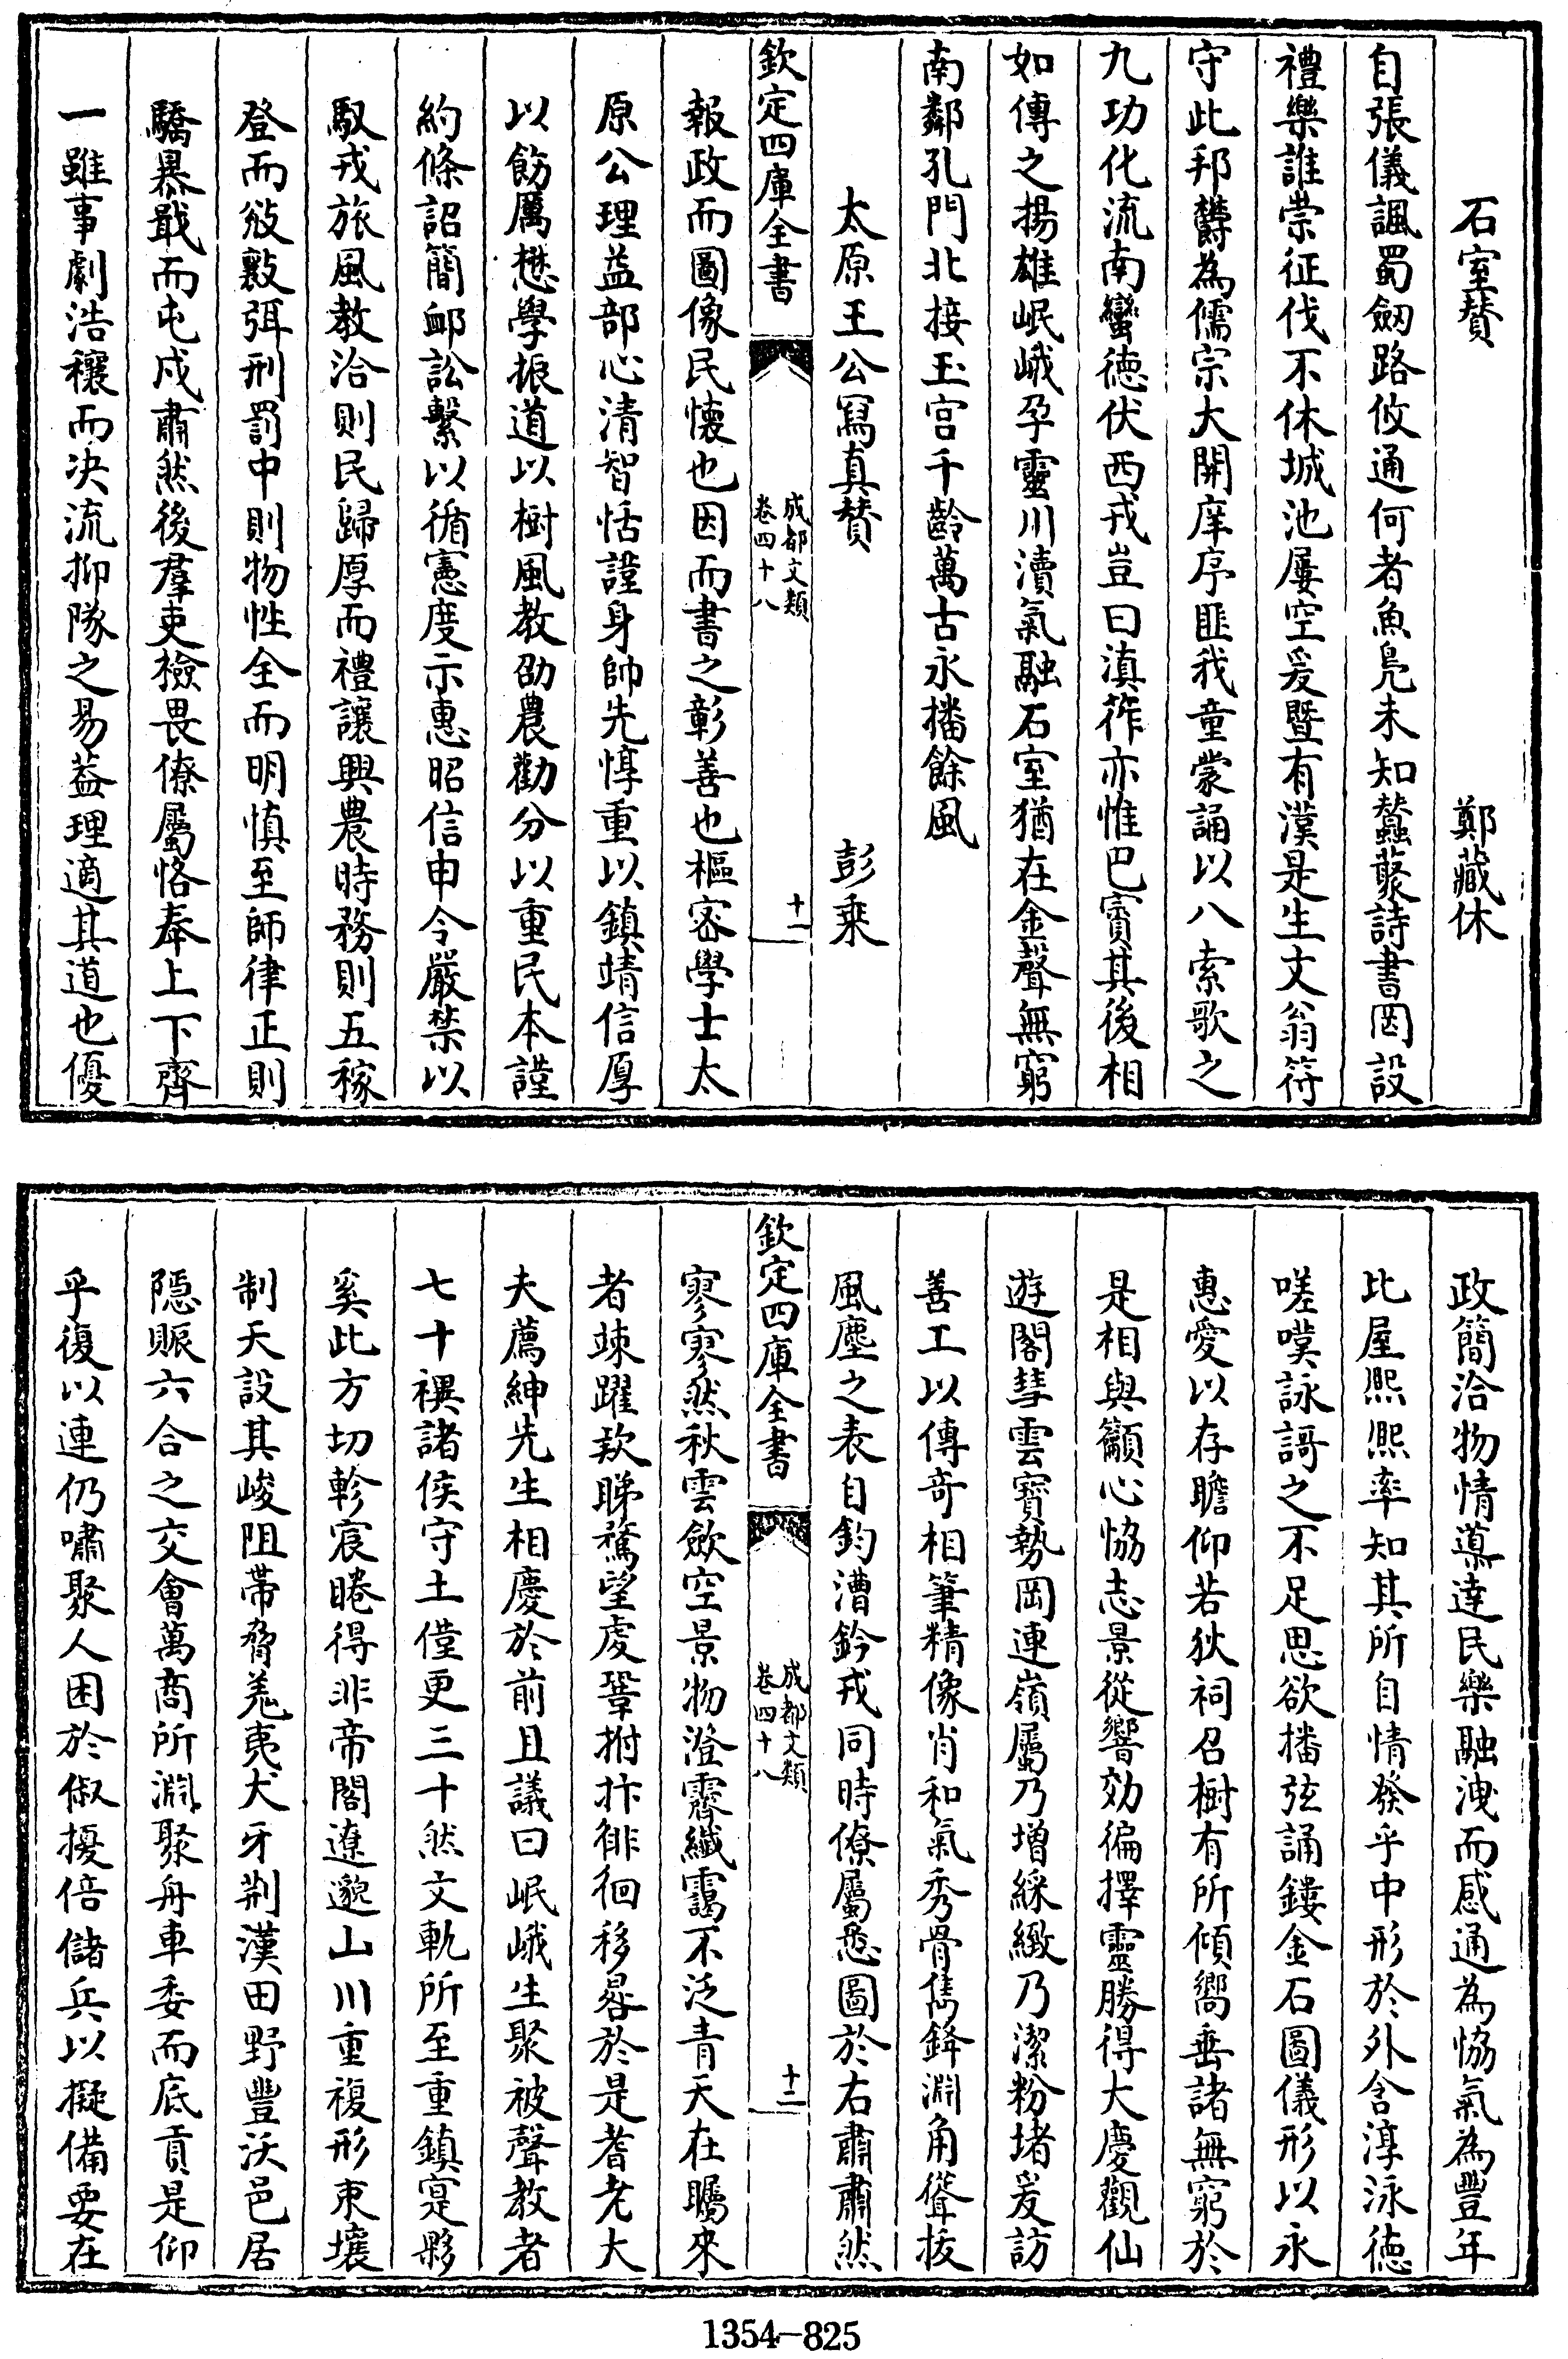 石室賛　鄭藏休
自張儀諷蜀劔路攸通何者魚鳬未知蠶藂詩書罔設
禮樂誰崇征伐不休城池屢空爰暨有漢是生文翁符
守此邦欝為儒宗大開庠序匪我童蒙誦以八索歌之
九功化流南蠻徳伏西戎豈曰滇莋亦惟巴賨其後相
如傳之揚雄岷峨孕靈川瀆氣融石室猶在金聲無窮
南鄰孔門北接玉宫千齡萬古永播餘風
太原王公寫真賛　彭乗
欽定四庫全書
成都文類
卷四十八
十一
報政而圖像民懐也因而書之彰善也樞宻學士太
原公理益部心清智恬謹身帥先惇重以鎮靖信厚
以飭厲懋學振道以樹風教劭農勸分以重民本謹
約條詔簡䘏訟繫以循憲度示惠昭信申令嚴禁以
馭戎旅風教洽則民歸厚而禮讓興農時務則五稼
登而斂敷弭刑罰中則物性全而明慎至師律正則
驕暴戢而屯戍肅然後羣吏檢畏僚屬恪奉上下齊
一雖事劇浩穰而决流抑隊之易葢理適其道也優
政簡洽物情導達民樂融洩而感通為恊氣為豐年
比屋熈熈率知其所自情發乎中形於外含淳泳徳
嗟嘆詠謌之不足思欲播弦誦鏤金石圖儀形以永
惠愛以存瞻仰若狄祠召樹有所傾嚮垂諸無窮於
是相與籲心恊志景從響効徧擇靈勝得大慶觀仙
遊閣彗雲寳勢岡連嶺屬乃增綵緻乃潔粉堵爰訪
善工以傳竒相筆精像肖和氣秀骨雋鋒淵角聳抜
風塵之表自鈞漕鈐戎同時僚屬悉圖於右肅肅然
欽定四庫全書
成都文類
卷四十八
十二
寥寥然秋雲歛空景物澄霽纎靄不泛青天在矚來
者竦躍欵睇騖望䖍鞏拊抃徘徊移晷於是耆老大
夫薦紳先生相慶於前且議曰岷峨生聚被聲教者
七十禩諸侯守土僅更三十然文軌所至重鎮寔夥
奚此方切軫宸睠得非帝閽遼邈山川重複形束壤
制天設其峻阻帶脅羗夷犬牙荆漢田野豐沃邑居
隠賑六合之交會萬商所淵聚舟車委而底貢是仰
乎復以連仍嘯聚人困於俶擾倍儲兵以擬備要在
1354-825